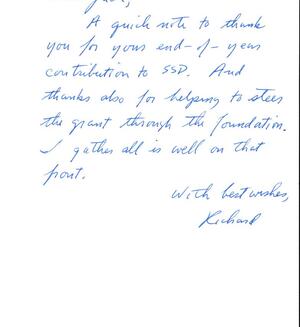 A quick note to thank
you for your end-of-year
contribution to SSD. And
thanks also for helping to steer
the grant through the foundation.
I gather all is well on that
front.
With best wishes,
Richard